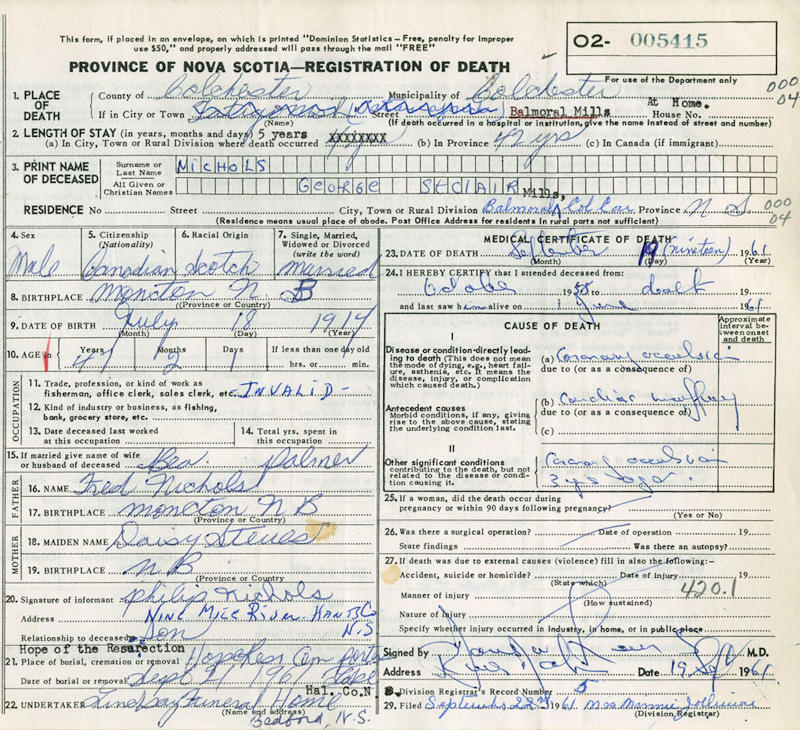 This form, if placed in an envelope, on which is printed "Dominion Statistics – Free, penalty for improper
use $50," and properly addressed will pass through the mail "FREE"
02- 005415
PROVINCE OF NOVA SCOTIA—REGISTRATION OF DEATH
For use of the Department only
000
04
1. PLACE OF DEATH
County of Colchester Municipality of Colchester
If in City or Town Street Balmoral Mills At Home. House No.
(Name) (If death occurred in a hospital or institution, give the name instead of street and number)
2. LENGTH OF STAY (in years, months and days) 5 years XXXXXXXX
(a) In City, Town or Rural Division where death occurred (b) In Province 47 yrs (c) In Canada (if immigrant)
3. PRINT NAME OF DECEASED
Surname or Last Name NICHOLS
All Given or Christian Names GEORGE
Mills,
RESIDENCE No Street City, Town or Rural Division Balmoral Province N S.
000
04
(Residence means usual place of abode. Post Office Address for residents in rural parts not sufficient)
4. Sex 5. Citizenship (Nationality) 6. Racial Origin 7. Single, Married, Widowed or Divorced (write the word)
Male Canadian Scotch married
8. BIRTHPLACE Moncton N B
9. DATE OF BIRTH July 18 1914
(Month) (Day) (Year)
10. AGE in Years Months Days If less than one day old
47 2 1 hrs. or min.
OCCUPATION
11. Trade, profession, or kind of work as
fisherman, office clerk, sales clerk, etc. INVALID -
12. Kind of industry or business, as fishing,
bank, grocery store, etc.
13. Date deceased last worked at this occupation
14. Total yrs. spent in this occupation
15. If married give name of wife or husband of deceased Bea Palmer
FATHER
16. NAME Fred Nichols
17. BIRTHPLACE Moncton N B
(Province or Country)
MOTHER
18. MAIDEN NAME Daisy Steves
19. BIRTHPLACE N B
(Province or Country)
20. Signature of informant Philip Nichols
Address NINE MILE RIVER. HANTS Co
N.S
Relationship to deceased Son
Hope of the Resurection
21. Place of burial, cremation or removal
Date of burial or removal Sept 21 1961
Hal. Co.N.
22. UNDERTAKER Lindsay Funeral Home
(Name and address)
Bedford, N.S.
MEDICAL CERTIFICATE OF DEATH
23. DATE OF DEATH September 19 (nineteen) 1961
(Month) (Day) (Year)
24. I HEREBY CERTIFY that I attended deceased from:
October 19 to death
and last saw him alive on 1 June 1961
CAUSE OF DEATH
Approximate interval between onset and death
I
Disease or condition directly leading to death (This does not mean the mode of dying, e.g., heart failure, asthenia, etc. It means the disease, injury, or complication which caused death.)
(a) Coronary occlusion
due to (or as a consequence of)
Antecedent causes
Morbid conditions, if any, giving rise to the above cause, stating the underlying condition last.
(b) Cardiac
due to (or as a consequence of)
(c)
II
Other significant conditions
contributing to the death, but not related to the disease or condition causing it.
Coronary occlusion
3 yrs ago.
25. If a woman, did the death occur during
pregnancy or within 90 days following pregnancy?
(Yes or No)
26. Was there a surgical operation? Date of operation 19
State findings Was there an autopsy?
27. If death was due to external causes (violence) fill in also the following:—
Accident, suicide or homicide? Date of injury 19
(State which)
Manner of injury 420.1
(How sustained)
Nature of injury
Specify whether injury occurred in industry, in home, or in public place
Signed by M.D.
Address Date 19 Sept 1961
28. Division Registrar's Record Number 5
29. Filed September 22nd 1961 Mrs Minnie
(Division Registrar)